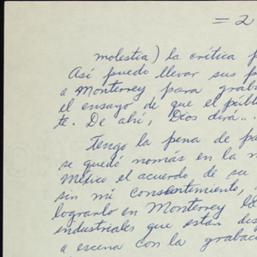 = 2
molestia) la crítica p
Así puedo llevar sus p
a Monterrey para graba
el ensayo de que el públ
te. De ahí, Dios dirá...
Tengo la pena de pa
se quedó nomás en la m
México el acuerdo, de su
sin mi consentimiento,
lograrlo en Monterrey
industriales que están des
a escena con la grabac